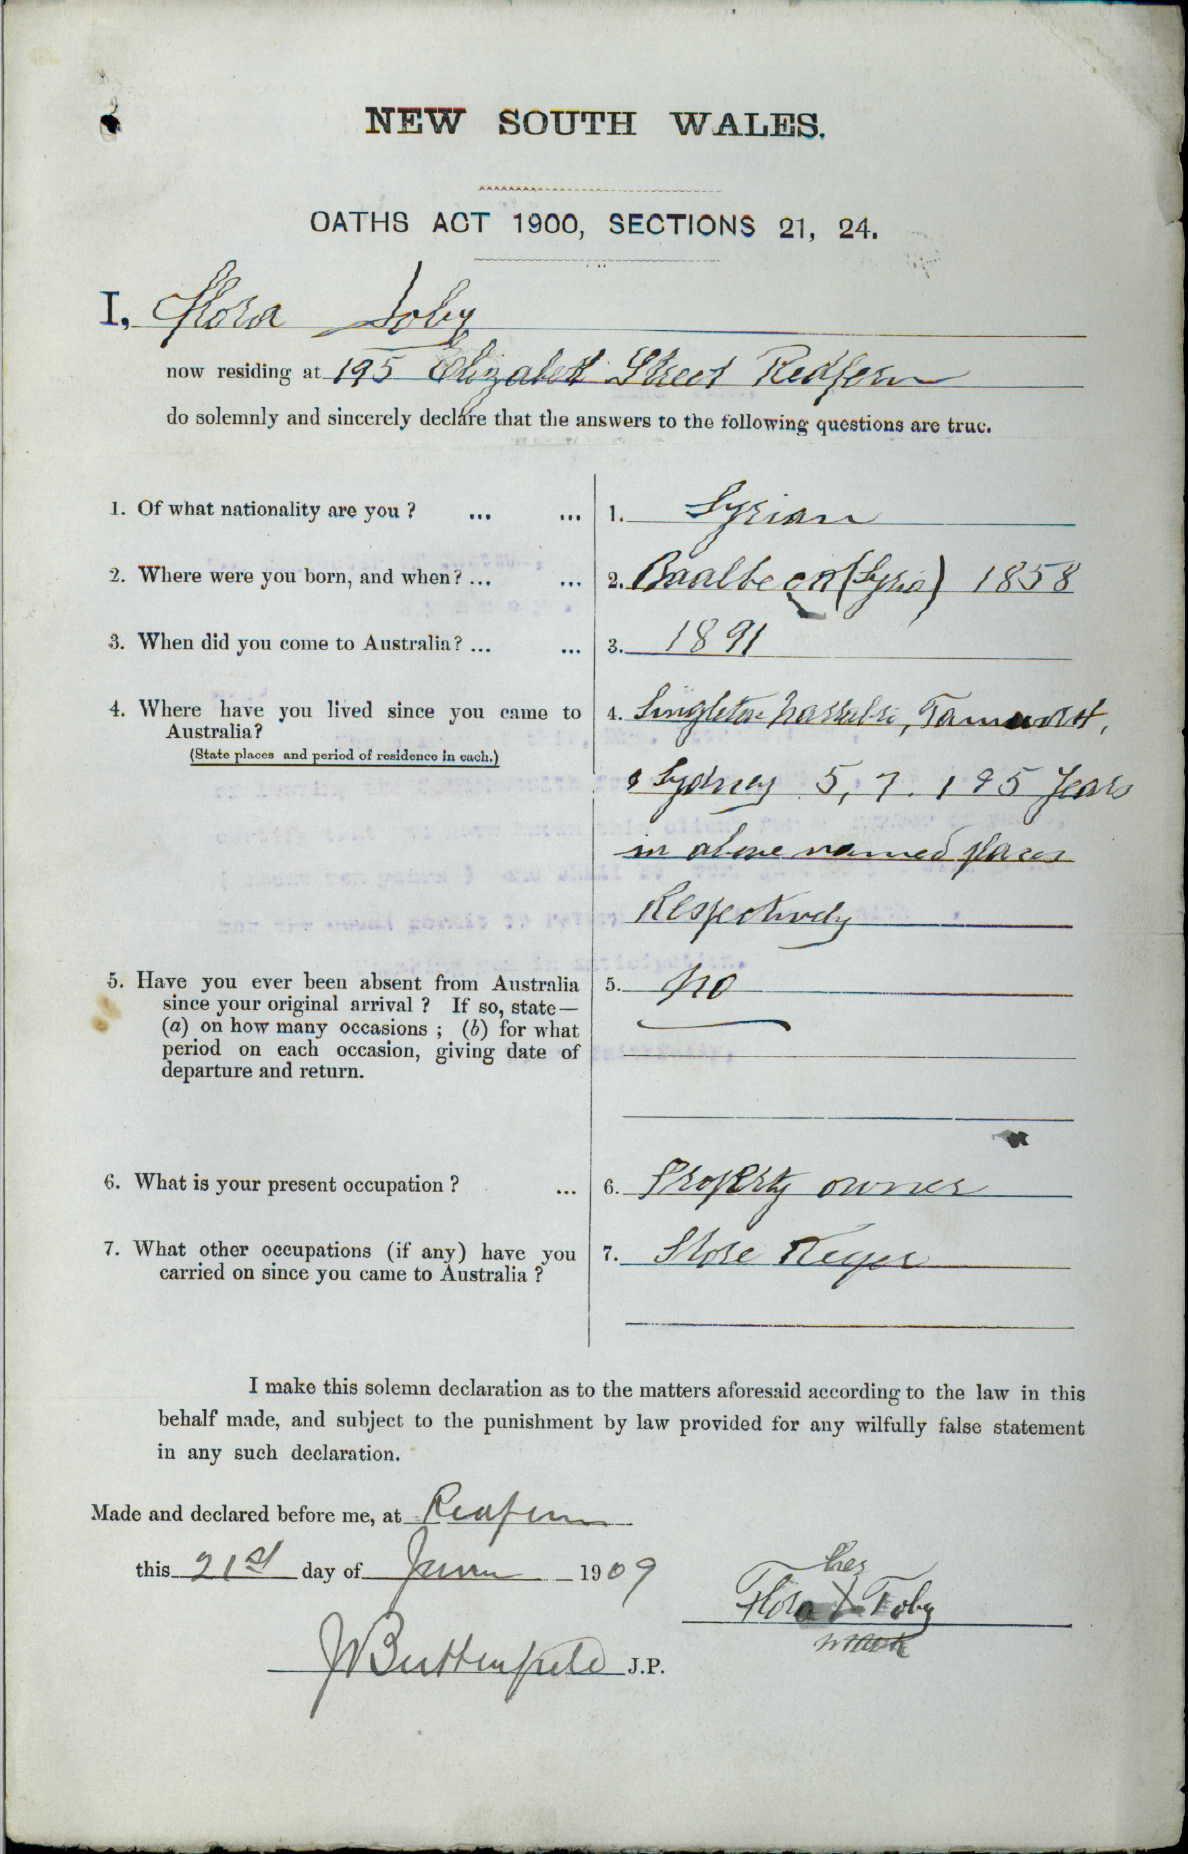 NEW SOUTH WALES.
OATHS ACT 1900, SECTIONS 21, 24.
I, Flora Toby
now residing at 195 Elizabeth Street Redfern
do solemnly and sincerely declare that the answers to the following questions are true.
1. Of what nationality are you ? ... ... 1. Syrian
2. Where were you born, and when? ... ... 2. Baalbeck (Syria) 1858
3. When did you come to Australia? ... ... 3. 1891
4. Where have you lived since you came to 4. Singleton Narrabri, Tamworth,
Australia?
(State places and period of residence in each.)
& Sydney 5, 7. 1 & 5 Years
in above named places
Respectively
5. Have you ever been absent from Australia 5. No
since your original arrival ? If so, state—
(a) on how many occasions ; (b) for what
period on each occasion, giving date of
departure and return.
6. What is your present occupation ? ... 6. Property owner
7. What other occupations (if any) have you 7. Store Keeper
carried on since you came to Australia ?
I make this solemn declaration as to the matters aforesaid according to the law in this
behalf made, and subject to the punishment by law provided for any wilfully false statement
in any such declaration.
Made and declared before me, at Redfern
this 21st day of June 1909
her
Flora X Toby
mark
J Buttenfield J.P.